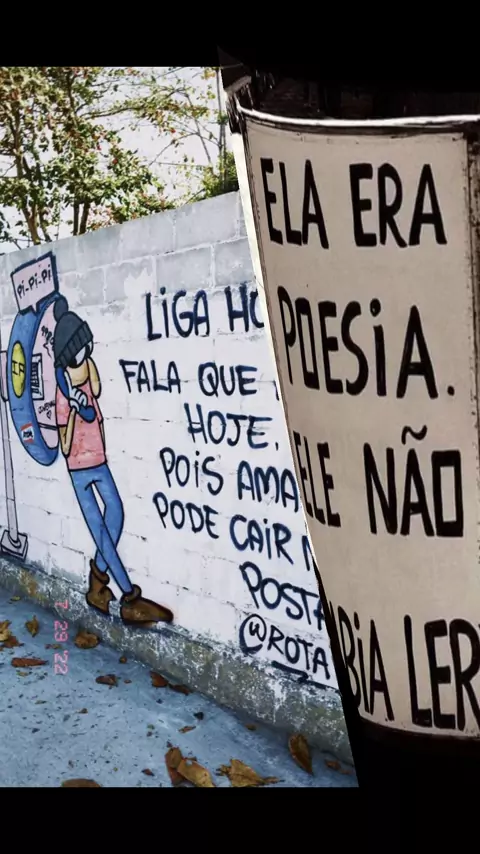 Pi-Pi-Pi
LIGA HO
FALA QUE
HOJE.
POIS AMA
PODE CAIR N
POSTA
@ROTA
7 29 '22
ELA ERA
POESIA.
ELE NÃO
BIA LER